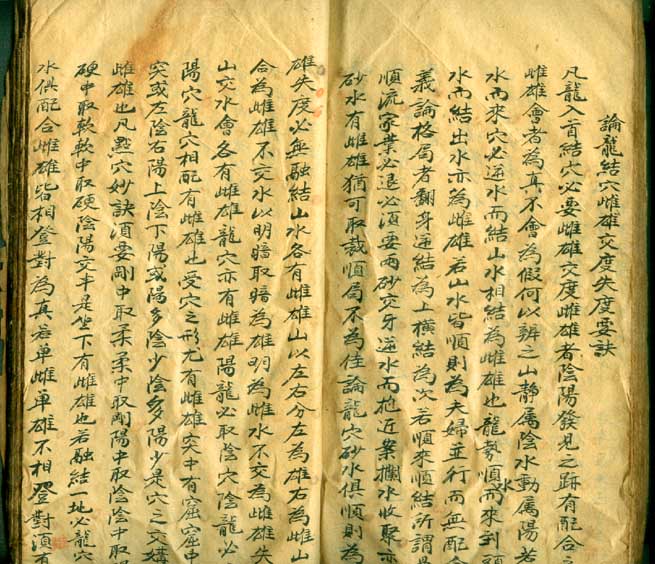 論龍結穴雌雄交度失度要訣
凡龍入首結穴必要雌雄交度雌雄者陰陽發見之跡有配合之
雌雄會者為真不會為假何以辨之山靜屬陰水動屬陽若
水而來穴必逆水而結山水相結為雌雄也龍勢順水而來到頭
水而結出水亦為雌雄若山水皆順則為夫婦並行而無配合
義論格局者翻身逆結為上橫結為次若順來順結所謂
順流家業必退必須要兩砂交牙逆水而抱近案攔水收聚亦
砂水有雌雄猶可取裁順局不為佳論龍穴砂水俱順則為
雄失度必無融結山水各有雌雄山以左右分左為雄右為雌山
合為雌雄不交水以明暗取暗為雄明為雌水不交為雌雄失
山交水會各有雌雄龍穴亦有雌雄陽龍必取陰穴陰龍必
陽穴龍穴相配有雌雄也受穴之形尤有雌雄突中有窟窟中
突或左陰右陽上陰下陽或陽多陰少陰多陽少是穴之交媾
雌雄也凡點穴妙訣須要剛中取柔柔中取剛陽中取陰陰中取
硬中取軟軟中取硬陰陽交半是坐下有雌雄也若融結一地必龍穴
水俱配合雌雄皆相登對為真若單雌單雄不相登對須有